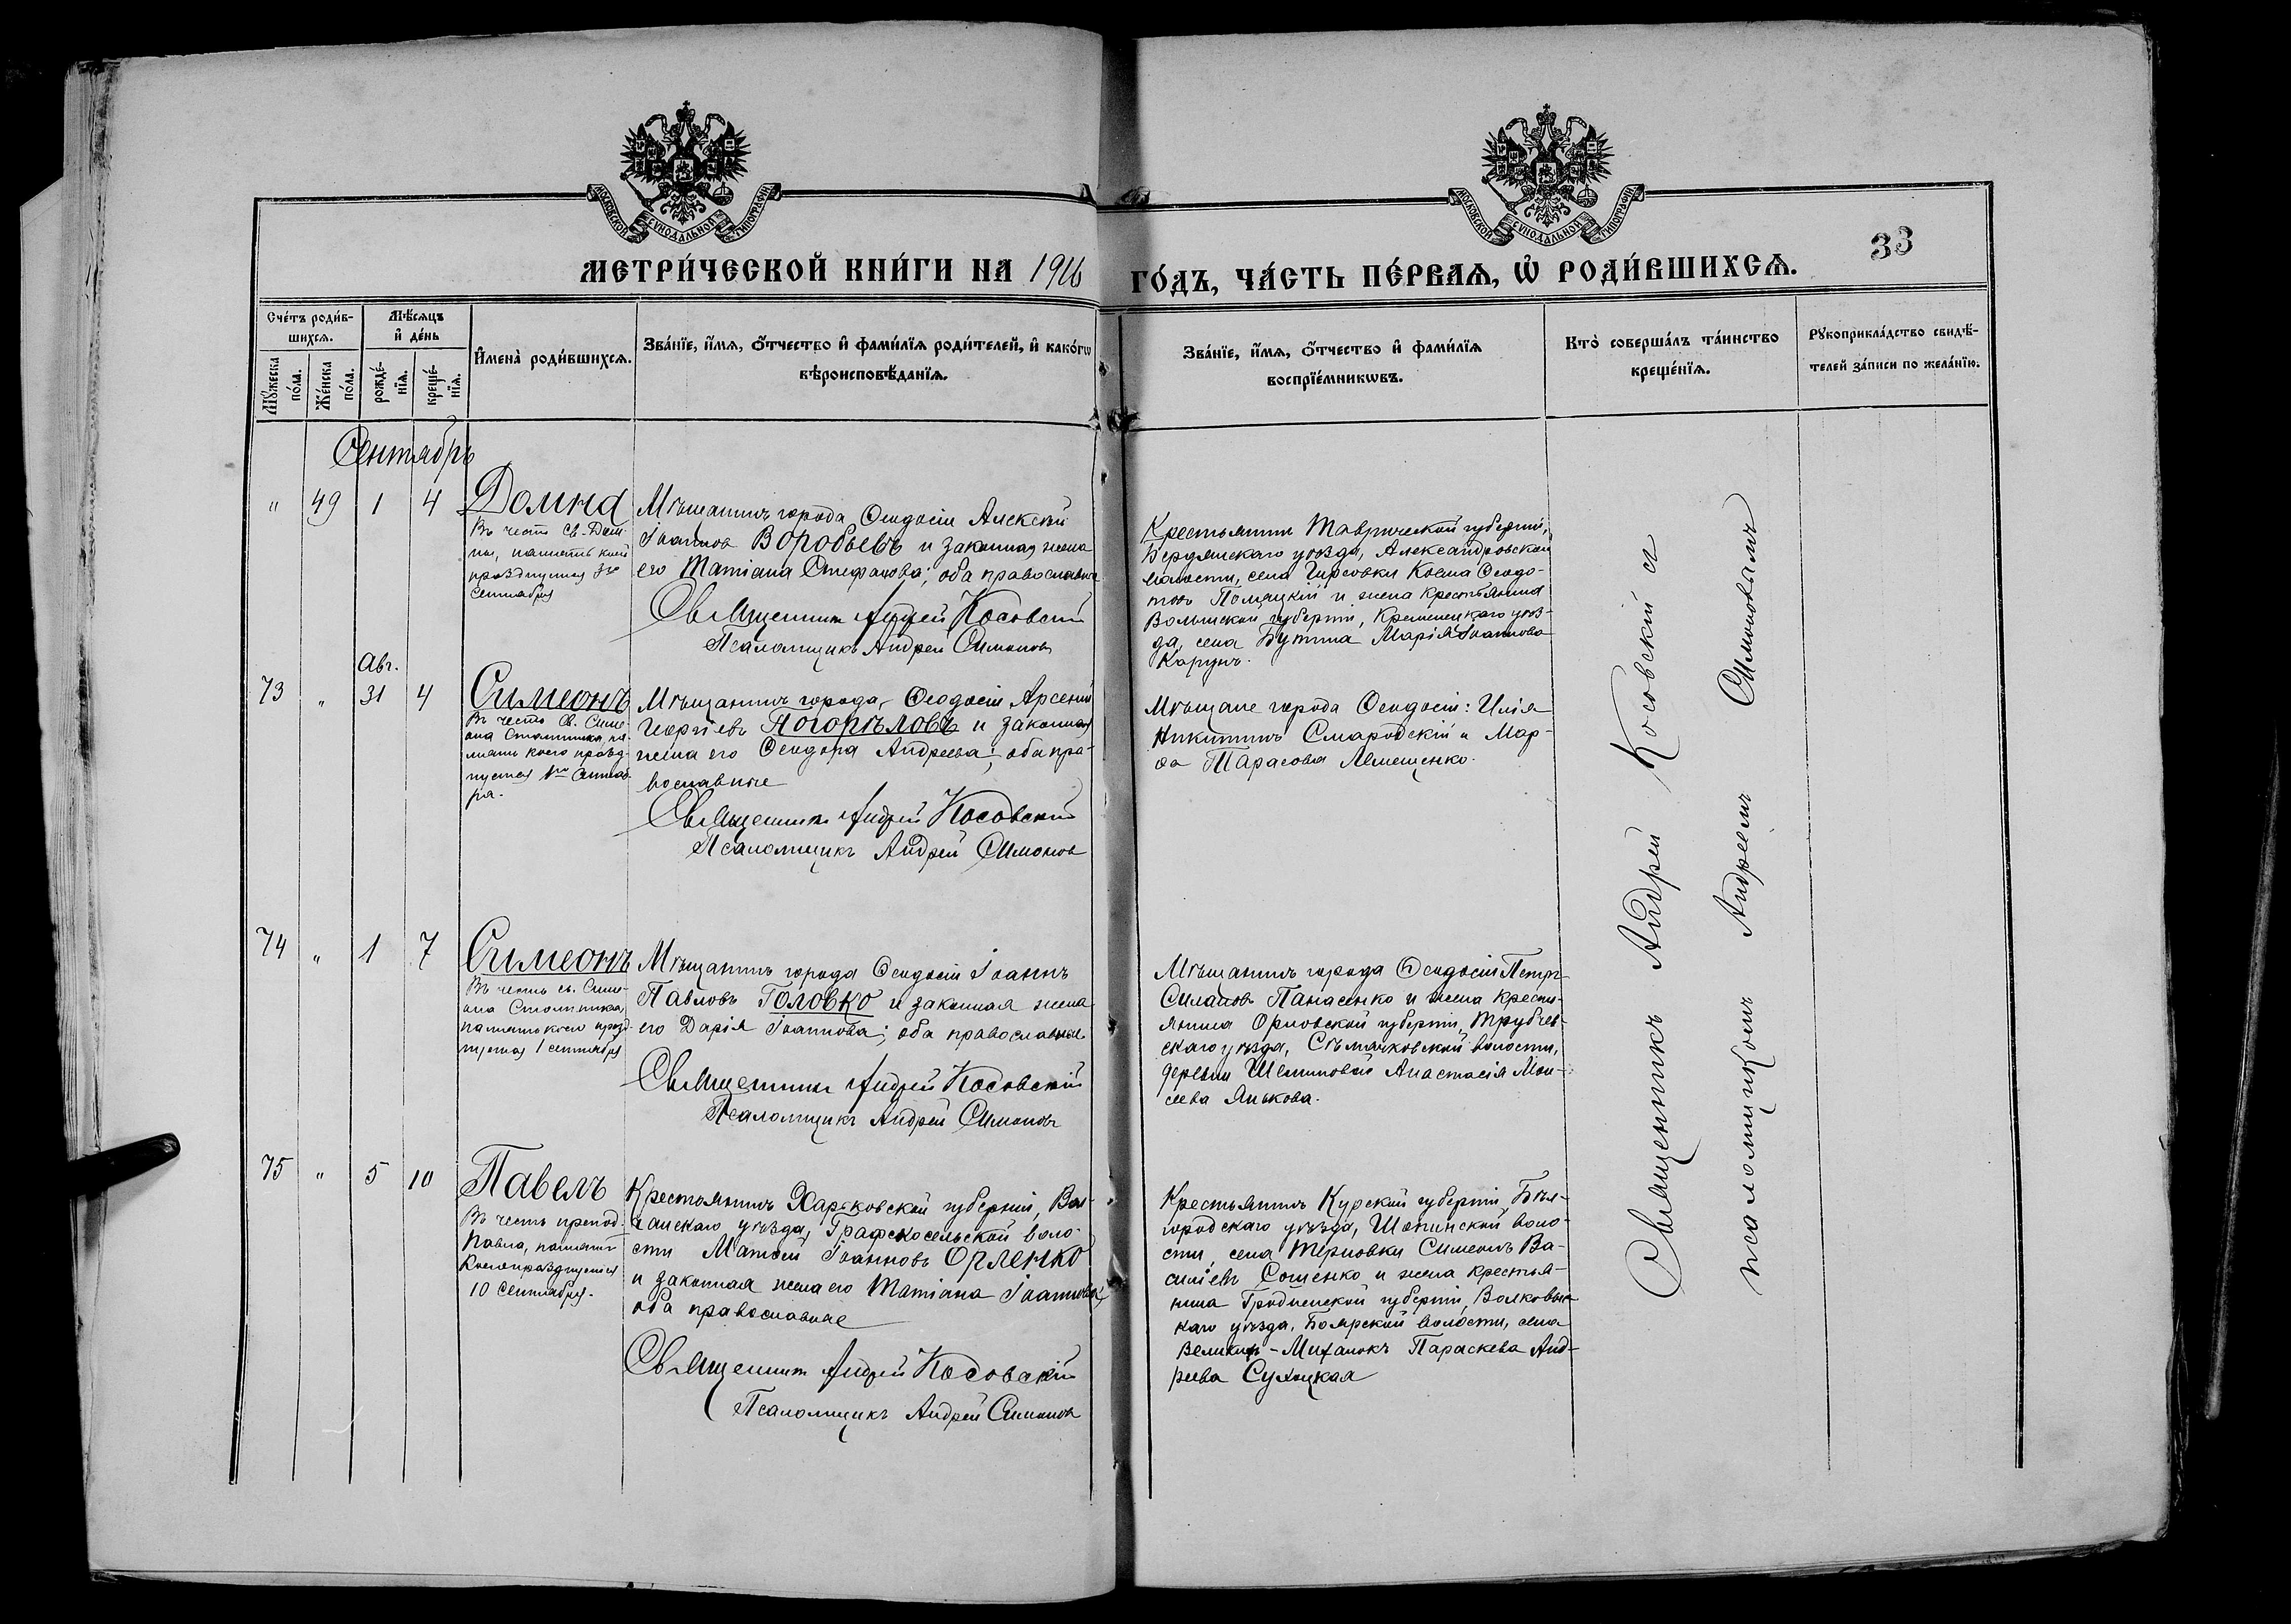 МОСКОВСКОЙ СѴНОДАЛЬНОЙ ТИПОГРАФІИ
МОСКОВСКОЙ СѴНОДАЛЬНОЙ ТИПОГРАФІИ
МЕТРИ́ЧЕСКОЙ КНИ́ГИ НА 1916 ГО́ДЪ, ЧА́СТЬ ПЕ́РВАѦ, Ѡ҆ РОДИ́ВШИХСѦ.
33
Сче́тъ роди́в-
шихсѧ.
Мѣ́сѧцъ
и҆ де́нь
Мꙋ́жеска
по́ла.
Же́нска
по́ла.
рожде́-
нїѧ.
креще́-
нїѧ.
И҆мена̀ роди́вшихсѧ.
Зва́нїе, и҆́мѧ, ѻ҆́тчество и҆ фами́лїѧ роди́телей, и҆ како́гѡ
вѣроисповѣ́данїѧ.
Зва́нїе, и҆́мѧ, ѻ҆́тчество и҆ фами́лїѧ
воспрїе́мникѡвъ.
Кто̀ соверша́лъ та́инство
креще́нїѧ.
Рꙋкоприкла́дство свидѣ́-
телей за́писи по жела́нїю.
Сентябрь
" 49 1 4
Домна
Въ честь св. Дом-
ны, память коей
празднуется 3го
Сентября
Мѣщанинъ города Ѳеодосіи Алексѣй
Іоанновъ Воробьевъ и законная жена
его Татіана Стефанова; оба православные
Священникъ Андрей Косовскій
Псаломщикъ Андрей Симоновъ
Крестьянинъ Таврической губерніи,
Бердянскаго уѣзда, Александровской
волости, села Гирсовки Косма Ѳеодо-
товъ и жена крестьянина
Волынской губерніи, Кременецкаго уѣз-
да, села Бутина Марія Іоаннова
Авг.
73 " 31 4
Симеонъ
Въ честь св. Симе-
она Столпника, па-
мять коего празд-
нуется 1го Сентяб-
ря.
Мѣщанинъ города Ѳеодосіи Арсеній
Георгіевъ Погорѣловъ и законная
жена его Ѳеодора Андреева; оба пра-
вославные
Священникъ Андрей Косовскій
Псаломщикъ Андрей Симоновъ
Мѣщане города Ѳеодосіи: Илія
Никитинъ Смародскій и Мар-
ѳа Тарасова Лемешенко.
74 " 1 7
Симеонъ
Въ честь св. Симе-
она Столпника,
память коего празд-
нуется 1 сентября
Мѣщанинъ города Ѳеодосіи Іоаннъ
Павловъ Головко и законная жена
его Дарія Іоаннова; оба православные
Священникъ Андрей Косовскій
Псаломщикъ Андрей Симоновъ
Мѣщанинъ города Ѳеодосіи Петръ
Силановъ Панасенко и жена кресть-
янина Орловской губерніи, Трубчев-
скаго уѣзда, Сѣмячковской волости,
деревни Анастасія Мои-
сеева Янькова.
75 " 5 10
Павелъ
Въ честь препод.
Павла, память
коего празднуется
10 Сентября.
Крестьянинъ Харьковской губерніи, Вол-
чанскаго уѣзда, Графскосельской воло-
сти Матѳей Іоанновъ Орленко
и законная жена его Татіана Іоаннова;
оба православные
Священникъ Андрей Косовскій
Псаломщикъ Андрей Симоновъ
Крестьянинъ Курской губерніи, Бѣл-
городскаго уѣзда, Шопинской воло-
сти, села Терновки Симеонъ Ва-
силіевъ Сошенко и жена крестья-
нина Гродненской губерніи, Волковыс-
каго уѣзда, Боярской волости, села
Великихъ-Миханокъ Параскева Анд-
реева Сухоцкая
Священникъ Андрей Косовскій съ
псаломщикомъ Андреемъ Симоновымъ